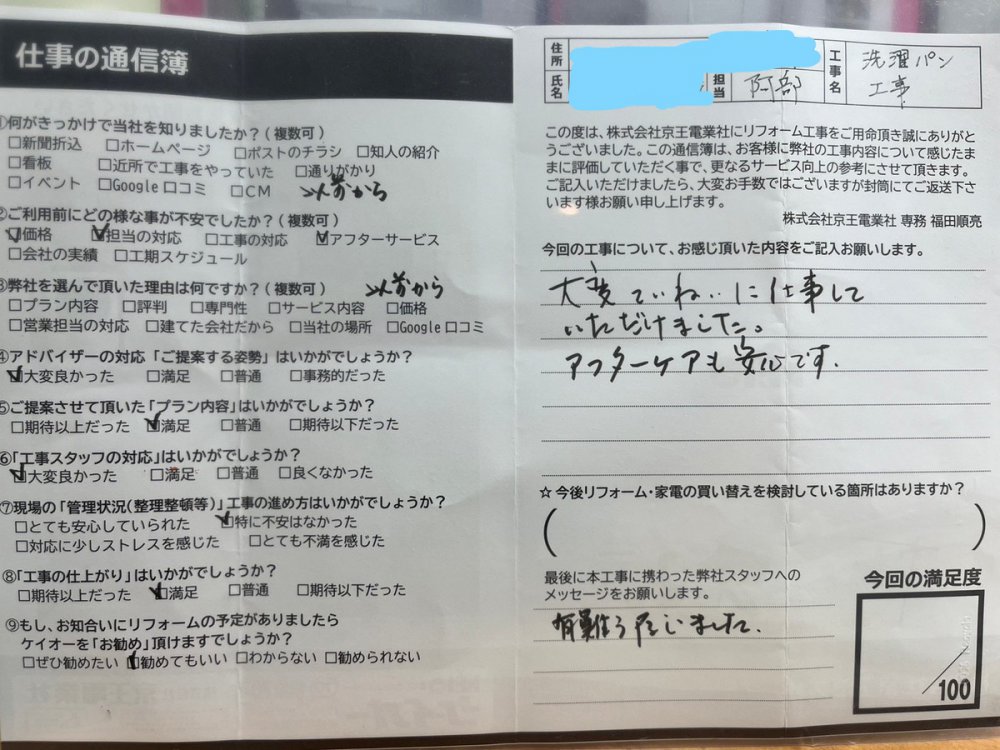 仕事の通信簿
①何がきっかけで当社を知りましたか？(複数可)
□新聞折込 □ホームページ □ポストのチラシ □知人の紹介
□看板 □近所で工事をやっていた □通りがかり
□イベント □Google口コミ □CM 以前から
②ご利用前にどの様な事が不安でしたか？(複数可)
☑価格 ☑担当の対応 □工事の対応 ☑アフターサービス
□会社の実績 □工期スケジュール
③弊社を選んで頂いた理由は何ですか？(複数可) 以前から
□プラン内容 □評判 □専門性 □サービス内容 □価格
□営業担当の対応 □建てた会社だから □当社の場所 □Google口コミ
④アドバイザーの対応「ご提案する姿勢」はいかがでしょうか？
☑大変良かった □満足 □普通 □事務的だった
⑤ご提案させて頂いた「プラン内容」はいかがでしょうか？
□期待以上だった ☑満足 □普通 □期待以下だった
⑥「工事スタッフの対応」はいかがでしょうか？
☑大変良かった □満足 □普通 □良くなかった
⑦現場の「管理状況(整理整頓等)」工事の進め方はいかがでしょうか？
□とても安心していられた ☑特に不安はなかった
□対応に少しストレスを感じた □とても不満を感じた
⑧「工事の仕上がり」はいかがでしょうか？
□期待以上だった ☑満足 □普通 □期待以下だった
⑨もし、お知合いにリフォームの予定がありましたら
ケイオーを「お勧め」頂けますでしょうか？
□ぜひ勧めたい ☑勧めてもいい □わからない □勧められない
住所
氏名
担当 阿部
工事名 洗濯パン
工事
この度は、株式会社京王電業社にリフォーム工事をご用命頂き誠にありがと
うございました。この通信簿は、お客様に弊社の工事内容について感じたま
まに評価していただく事で、更なるサービス向上の参考にさせて頂きます。
ご記入いただけましたら、大変お手数ではございますが封筒にてご返送下さ
います様お願い申し上げます。
株式会社京王電業社 専務 福田順亮
今回の工事について、お感じ頂いた内容をご記入お願いします。
大変ていねいに仕事して
いただけました。
アフターケアも安心です.
☆今後リフォーム・家電の買い替えを検討している箇所はありますか？
( )
最後に本工事に携わった弊社スタッフへの
メッセージをお願いします。
有難うございました.
今回の満足度
/100